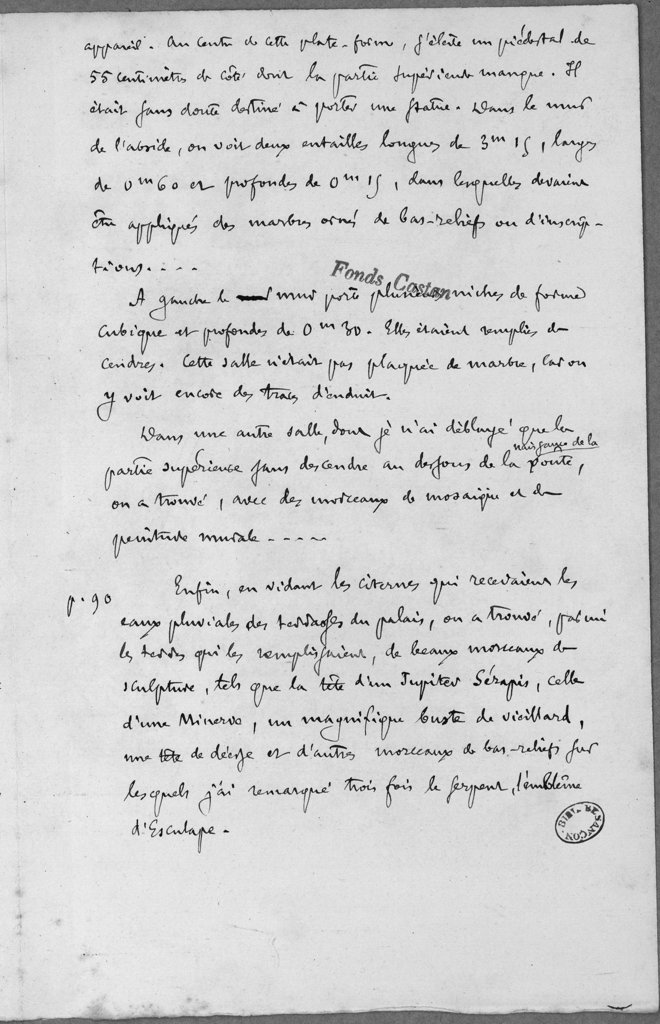 appareil. Au centre de cette plate-forme, s'élève un piédestal de
55 centimètres de côté dont la partie supérieure manque. Il
était sans doute destiné à porter une statue. Dans le mur
de l'abside, on voit deux entailles longues de 3m 15, larges
de 0m 60 et profondes de 0m 15, dans lesquelles devaient
être appliqués des marbres ornés de bas-reliefs ou d'inscrip-
tions. . . .
Fonds Castan
A gauche le mur porte plusieurs niches de forme
cubique et profondes de 0m 30. Elles étaient remplies de
cendres. Cette salle n'était pas plaquée de marbre, car on
y voit encore des traces d'enduit.
Dans une autre salle, dont je n'ai déblayé que la
partie supérieure sans descendre au dessous de la naissance de la voûte,
on a trouvé, avec des morceaux de mosaïque et de
peinture murale - - - - -
p. 90 Enfin, en vidant les citernes qui recevaient les
eaux pluviales des terrasses du palais, on a trouvé, parmi
les terres qui les remplissaient, de beaux morceaux de
sculpture, tels que la tête d'un Jupiter Sérapis, celle
d'une Minerve, un magnifique buste de vieillard,
une tête de déesse et d'autres morceaux de bas-reliefs sur
lesquels j'ai remarqué trois fois le serpent, l'emblême
d'Esculape.
BIBL. BESANÇON